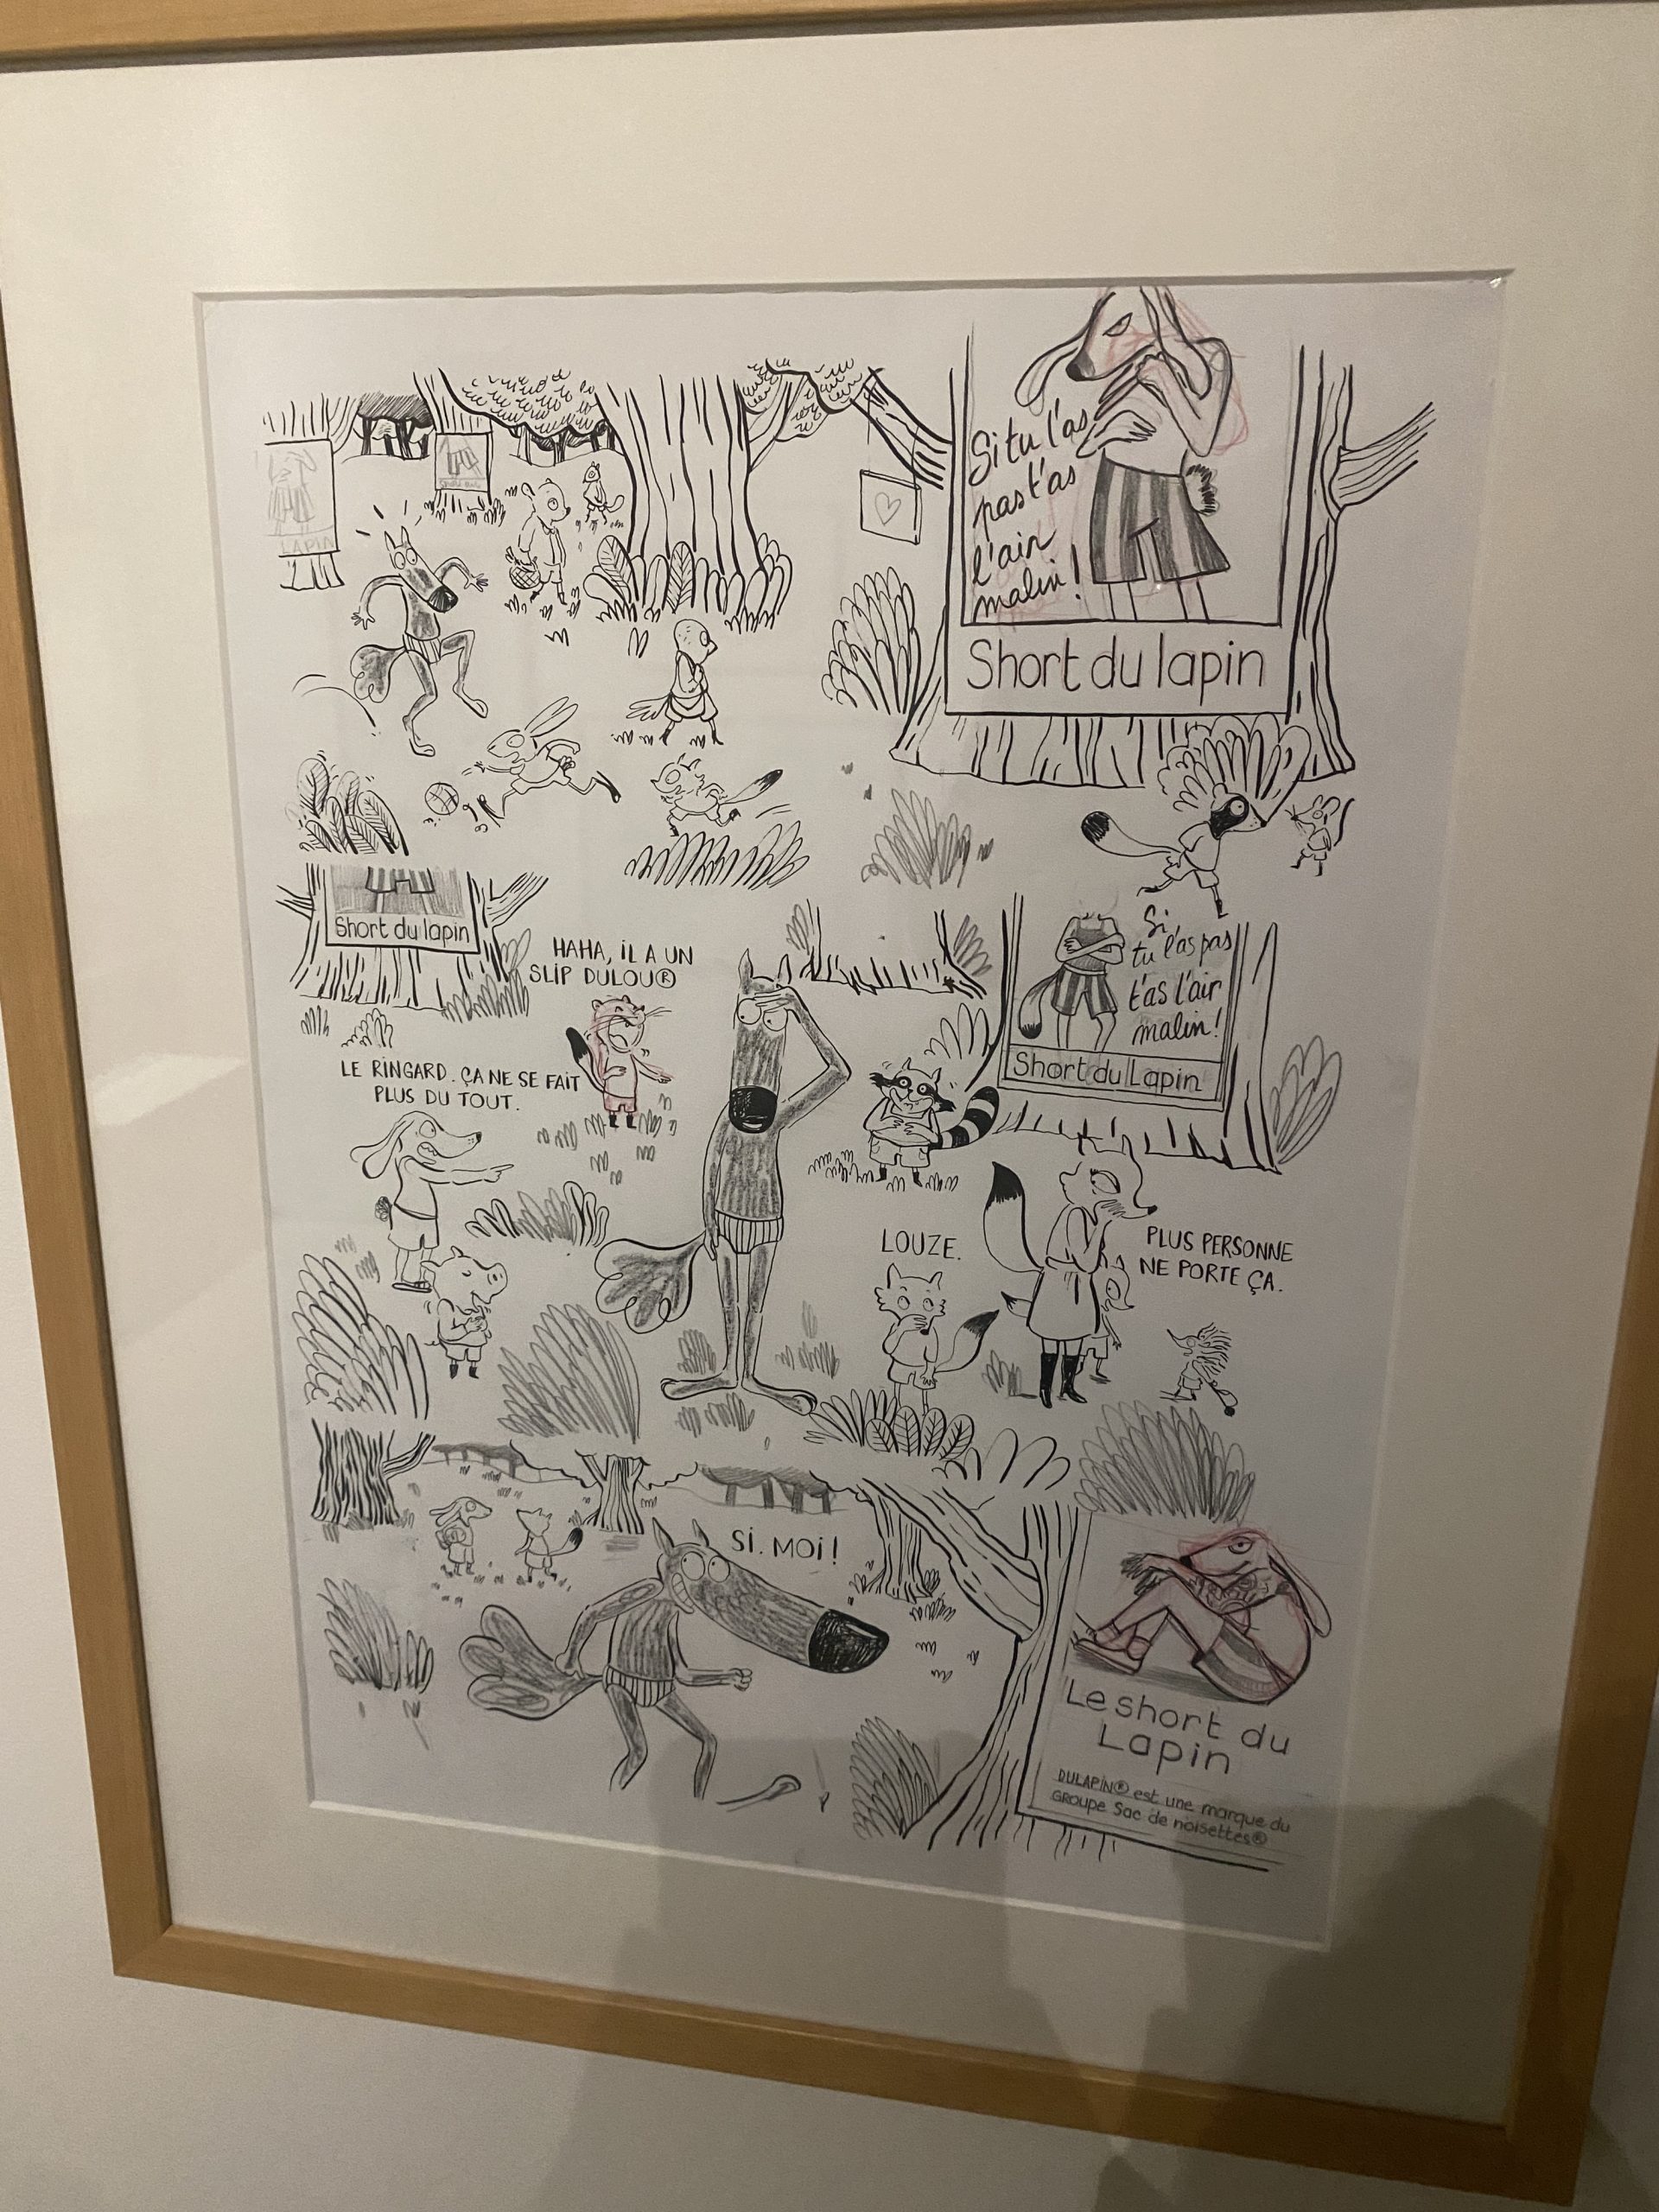 LAPIN
Si tu l'as
pas t'as
l'air
malin !
Short du lapin
Short du lapin
HAHA, iL A UN
SLIP DULOU®
LE RINGARD. ÇA NE SE FAIT
PLUS DU TOUT.
Si
tu l'as pas
t'as l'air
malin !
Short du Lapin
LOUZE.
PLUS PERSONNE
NE PORTE ÇA.
Si. MOi !
Le short du
Lapin
DULAPiN® est une marque du
GROUPE Sac de noisettes®